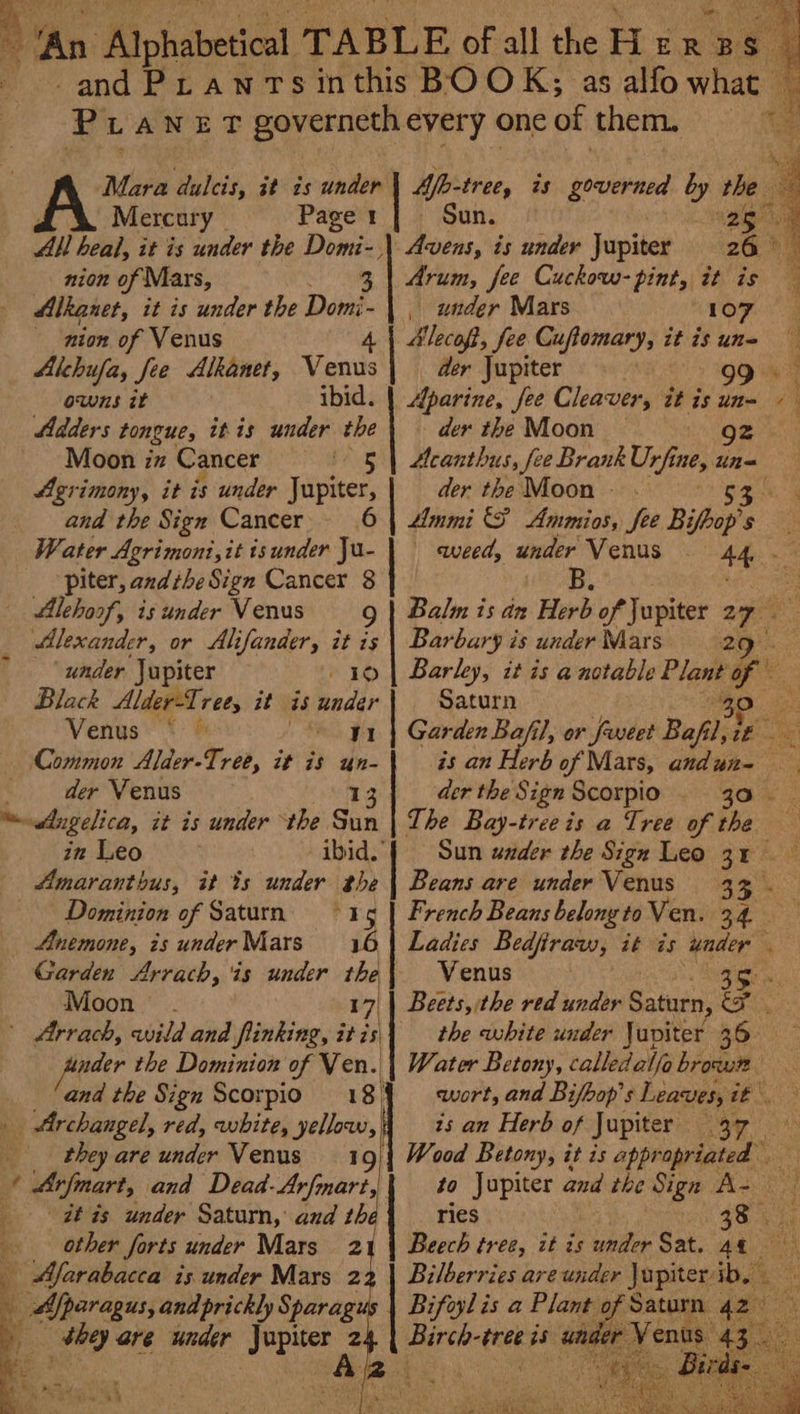 An Alphabetical TABLE of all the HERBS
and PLANTS in this BOOK; as alſo what
PLANET governeth every one of them.
AMara dulcis, it is under
Mercury Page 1
All heal, it is under the Domi-
nion of Mars, 3
Alkanet, it is under the Domi-
nion of Venus 4
Alchuſa, ſee Alkanet, Venus
owns it ibid.
Adders tongue, it is under the
Moon in Cancer 5
Agrimony, it is under Jupiter,
and the Sign Cancer 6
Water Agrimoni, it is under Ju-
piter, and the Sign Cancer 8
Alehoof, is under Venus 9
Alexander, or Aliſander, it is
under Jupiter 10
Black Alder-Tree, it is under
Venus 11
Common Alder-Tree, it is un-
der Venus 13
Angelica, it is under the Sun
in Leo ibid.
Amaranthus, it is under the
Dominion of Saturn 15
Anemone, is under Mars 16
Garden Arrach, is under the
Moon 17
Arrach, wild and ſtinking, it is
under the Dominion of Ven.
and the Sign Scorpio 18
Archangel, red, white, yellow,
they are under Venus 19
Arſmart, and Dead-Arſmart,
it is under Saturn, and the
other ſorts under Mars 21
Aſarabacca is under Mars 22
Aſparagus, and prickly Sparagus
they are under Jupiter 24
A 2
Aſh-tree, is governed by the
Sun. 25
Avens, is under Jupiter 26
Arum, ſee Cuckow-pint, it is
under Mars 107
Alecoſt, ſee Cuſtomary, it is un-
der Jupiter 99
Aparine, ſee Cleaver, it is un-
der the Moon 92
Acanthus, ſee Brank Urſine, un-
der the Moon 53
Ammi & Ammios, ſee Biſhop's
weed, under Venus 44
B.
Balm is an Herb of Jupiter 27
Barbary is under Mars 29
Barley, it is a notable Plant of
Saturn 30
Garden Baſil, or ſweet Baſil, it
is an Herb of Mars, and un-
der the Sign Scorpio 30
The Bay-tree is a Tree of the
Sun under the Sign Leo 31
Beans are under Venus 33
French Beans belong to Ven. 34
Ladies Bedſtraw, it is under
Venus 35
Beets, the red under Saturn, &
the white under Jupiter 36
Water Betony, called alſo brown
wort, and Biſhop's Leaves, it
is an Herb of Jupiter 37
Wood Betony, it is appropriated
to Jupiter and the Sign A-
ries 38
Beech tree, it is under Sat. 41
Bilberries are under Jupiter ib.
Bifoyl is a Plant of Saturn 42
Birch-tree is under Venus 43
Birds-